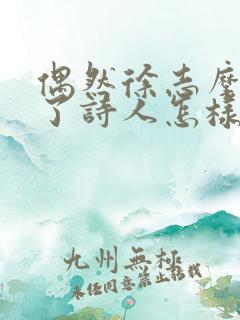 偶然徐志摩
了詩人怎樣
九州無極
未经同意禁止转载